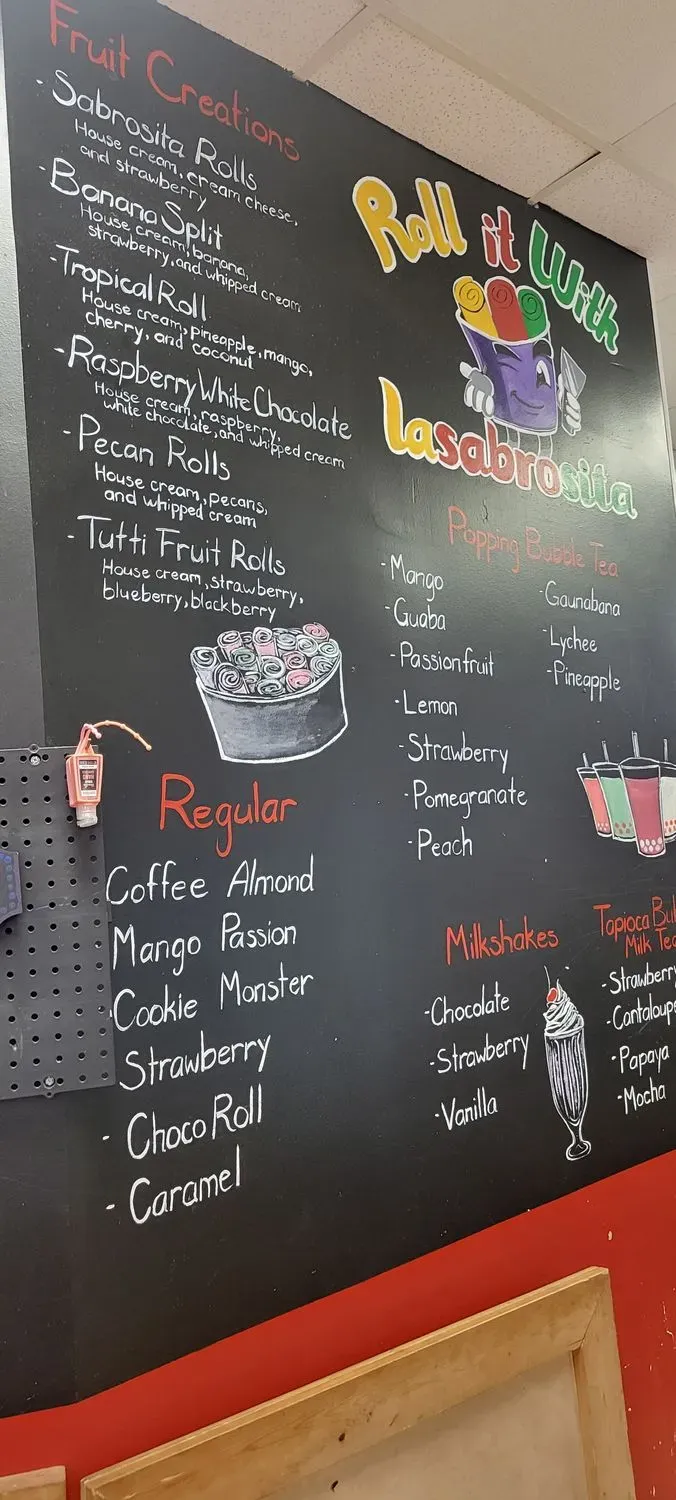 Fruit Creations
- Sabrosita Rolls
House cream, cream cheese,
and strawberry
- Banana Split
House cream, banana,
strawberry, and whipped cream
- Tropical Roll
House cream, pineapple, mango,
cherry, and coconut
- Raspberry White Chocolate
House cream, raspberry,
white chocolate, and whipped cream
- Pecan Rolls
House cream, pecans,
and whipped cream
- Tutti Fruit Rolls
House cream, strawberry,
blueberry, blackberry
Regular
Coffee Almond
Mango Passion
Cookie Monster
Strawberry
- Choco Roll
- Caramel
Roll it With
lasabrosita
Popping Bubble Tea
- Mango
- Guaba
- Passionfruit
- Lemon
- Strawberry
- Pomegranate
- Peach
- Gaunabana
- Lychee
- Pineapple
Milkshakes
- Chocolate
- Strawberry
- Vanilla
Tapioca
Milk
- Strawberry
- Cantaloupe
- Papaya
- Mocha